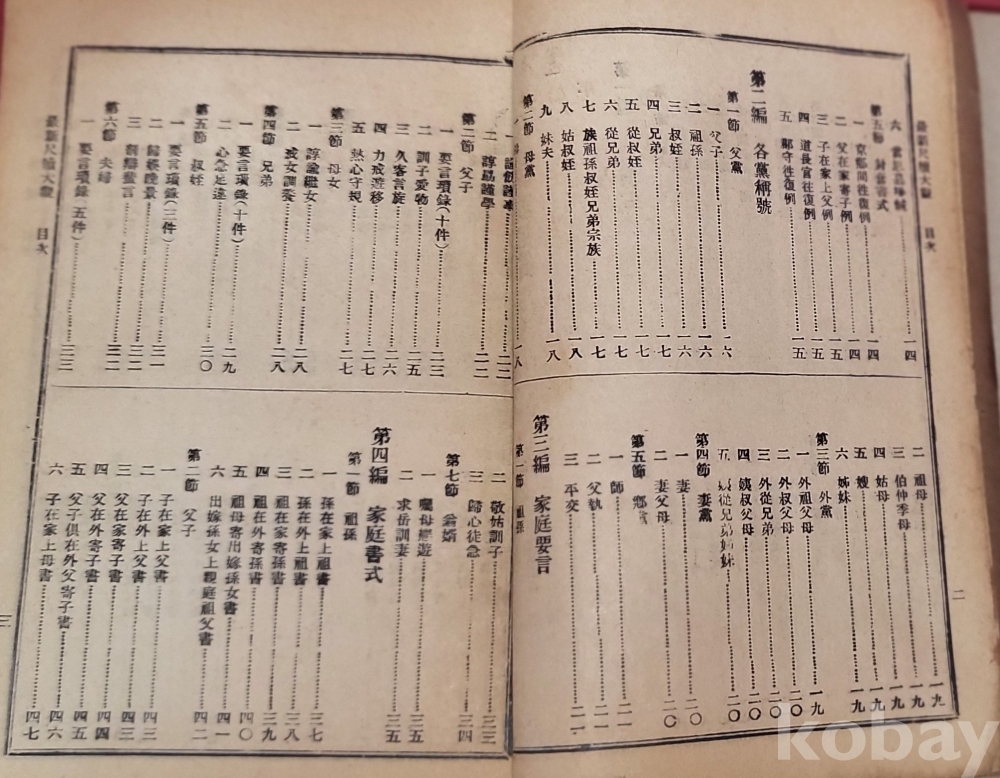 最新尺牘大觀 目次
二
六
一四
第五節 封套書式
一 京鄉間往復例 一四
二 父在家寄子例 一四
三 子在家上父例 一五
四 道長官往復例 一五
五 郡守往復例 一五
第二編 各黨稱號
第一節 父黨
一 父子 一六
二 祖孫 一六
三 叔姪 一六
四 兄弟 一七
五 從叔姪 一七
六 從兄弟 一七
七 族祖孫叔姪兄弟宗族 一七
八 姑叔姪 一八
九 妹夫 一八
第二節 母黨
一 母 一八
二 祖母 一九
三 伯仲季母 一九
四 姑母 一九
五 嫂 一九
六 姊妹 一九
第三節 外黨
一 外祖父母 一九
二 外叔父母 二〇
三 外從兄弟 二〇
四 姨叔父母 二〇
五 姨從兄弟姊妹 二〇
第四節 妻黨
一 妻 二〇
二 妻父母 二〇
第五節 鄉黨
一 師 二一
二 父執 二一
三 平交 二一
第三編 家庭要言
第一節 祖孫
一
二 諄勗謹學 二二
第二節 父子
一 要言瑣錄(十件) 二三
二 訓子愛物 二五
三 久客言旋 二六
四 力戒遊移 二七
五 熱心守規 二七
第三節 母女
一 諄諭繼女 二八
二 戒女調養 二八
第四節 兄弟
一 要言瑣錄(十件) 二九
二 心念足達 三〇
第五節 叔姪
一 要言瑣錄(三件) 三一
二 歸慰晚景 三二
三 三二
第六節 夫婦
一 要言瑣錄(五件) 三三
二 敬姑訓子 三三
三 歸心徒急 三四
第七節 翁婿
一 三五
二 求岳訓妻 三五
第四編 家庭書式
第一節 祖孫
一 孫在家上祖書 三七
二 孫在外上祖書 三八
三 祖在家寄孫書 三九
四 祖在外寄孫書 四〇
五 祖母寄出嫁孫女書 四一
六 出嫁孫女上親庭祖父書 四二
第二節 父子
一 子在家上父書 四三
二 子在外上父書 四三
三 父在家寄子書 四四
四 父在外寄子書 四五
五 父子俱在外父寄子書 四六
六 子在家上母書 四七
最新尺牘大觀 目次
三
kobay